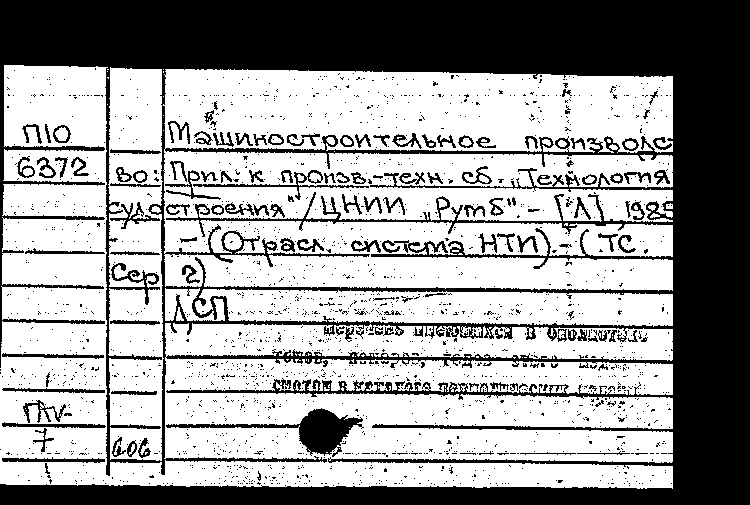 П10 Машиностроительное производст
6372 во: Прил. к произв.-техн. сб. „Технология
судостроения"/ЦНИИ „Румб".- [Л], 1985
- -(Отрасл. система НТИ).- (ТС.
Сер 2)
ДСП
Перечень имеющихся в библиотеке
томов, номеров, годов этого
смотри в каталоге периодических изданий
7 606